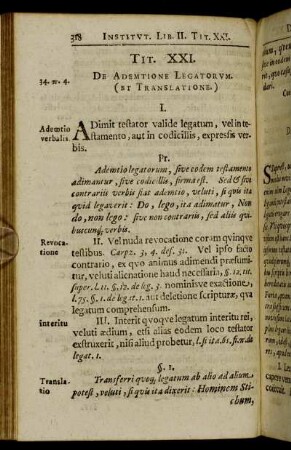 318 INSTITVT. LIB. II. TIT. XXI.
TIT. XXI.
DE ADEMTIONE LEGATORVM.
(ET TRANSLATIONE.)
34. tt. 4.
I.
Ademtio verbalis.
ADimit testator valide legatum, vel in te-
stamento, aut in codicillis, expressis ver-
bis.
Pr.
Ademtio legatorum, sive eodem testamento
adimantur, sive codicillis, firma est. Sed & si
contrariis verbis fiat ademtio, veluti, si quis ita
quid legaverit: Do, lego, ita adimatur, Non
do, non lego: sive non contrariis, sed aliis qui-
buscunq; verbis.
Revoca-
tione
II. Vel nuda revocatione coram quinque
testibus. Carpz. 3, 4. def. 31. Vel ipso facto
contrario, ex quo animus adimendi præsumi-
tur, veluti alienatione haud necessaria, §. 12. in.
super. l. 11. §. 12. de leg. 3. nominisve exactione,
l. 75. §. 1. de leg. 1. aut deletione scripturæ, qua
legatum comprehensum.
Interitu
III. Interit quoqve legatum interitu rei,
veluti ædium, etsi alias eodem loco testator
exstruxerit, nisi aliud probetur,
legat. 1.
§. 1.
Transla-
tio
Transferri quoq; legatum ab alio ad alium
potest, veluti, si quis ita dixerit: Hominem Sti-
chum,